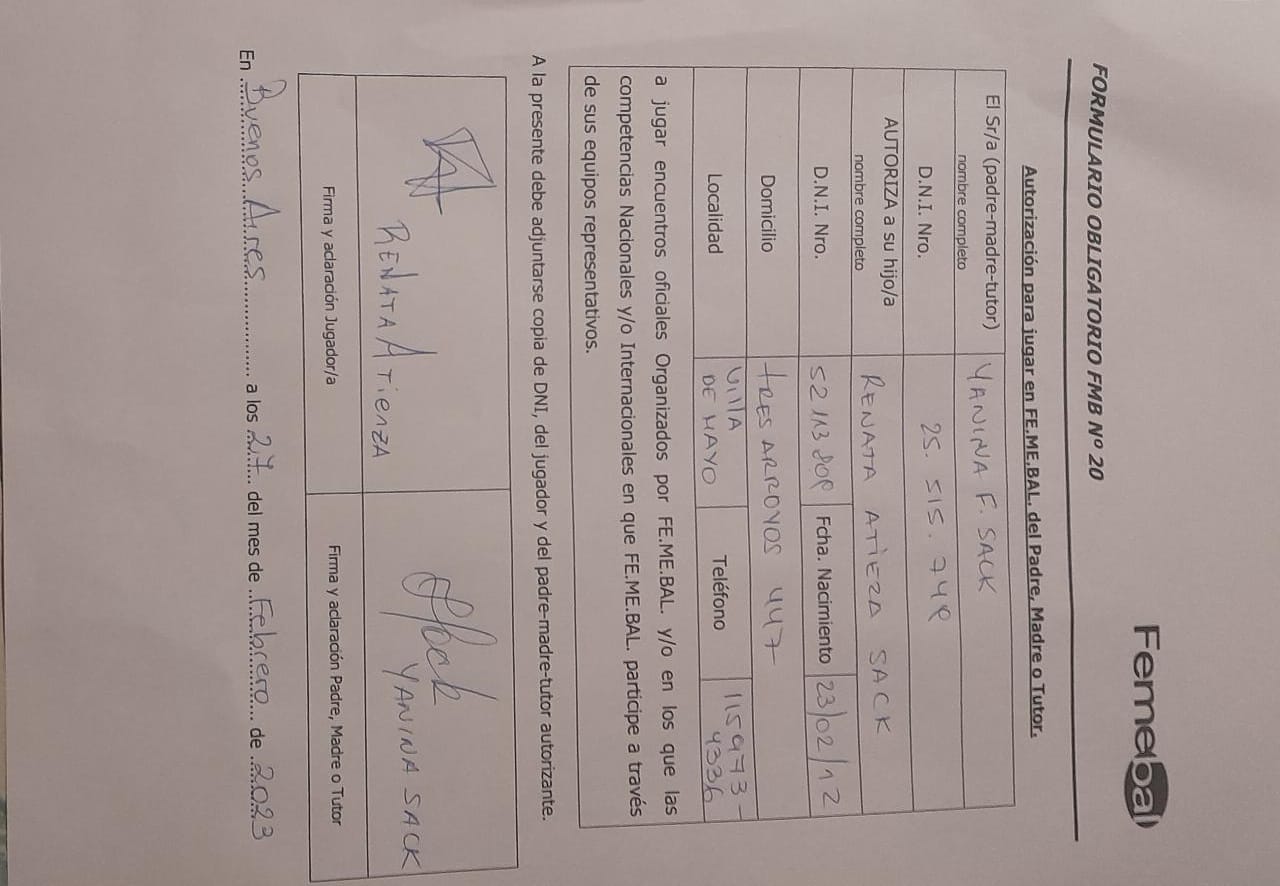 Femebal
FORMULARIO OBLIGATORIO FMB Nº 20
Autorización para jugar en FE.ME.BAL. del Padre, Madre o Tutor.
El Sr/a (padre-madre-tutor) YANINA F. SACK
nombre completo
D.N.I. Nro. 25. 515. 748
AUTORIZA a su hijo/a RENATA ATIEZA SACK
nombre completo
D.N.I. Nro. 52 113 808 Fcha. Nacimiento 23/02/12
Domicilio TRES ARROYOS 447
Localidad VILLA DE MAYO Teléfono 115973-4336
a jugar encuentros oficiales Organizados por FE.ME.BAL. y/o en los que las
competencias Nacionales y/o Internacionales en que FE.ME.BAL. participe a través
de sus equipos representativos.
A la presente debe adjuntarse copia de DNI, del jugador y del padre-madre-tutor autorizante.
RENATA ATienzA
YANINA SACK
Firma y aclaración Jugador/a
Firma y aclaración Padre, Madre o Tutor
En Buenos Aires a los 27 del mes de Febrero de 2023